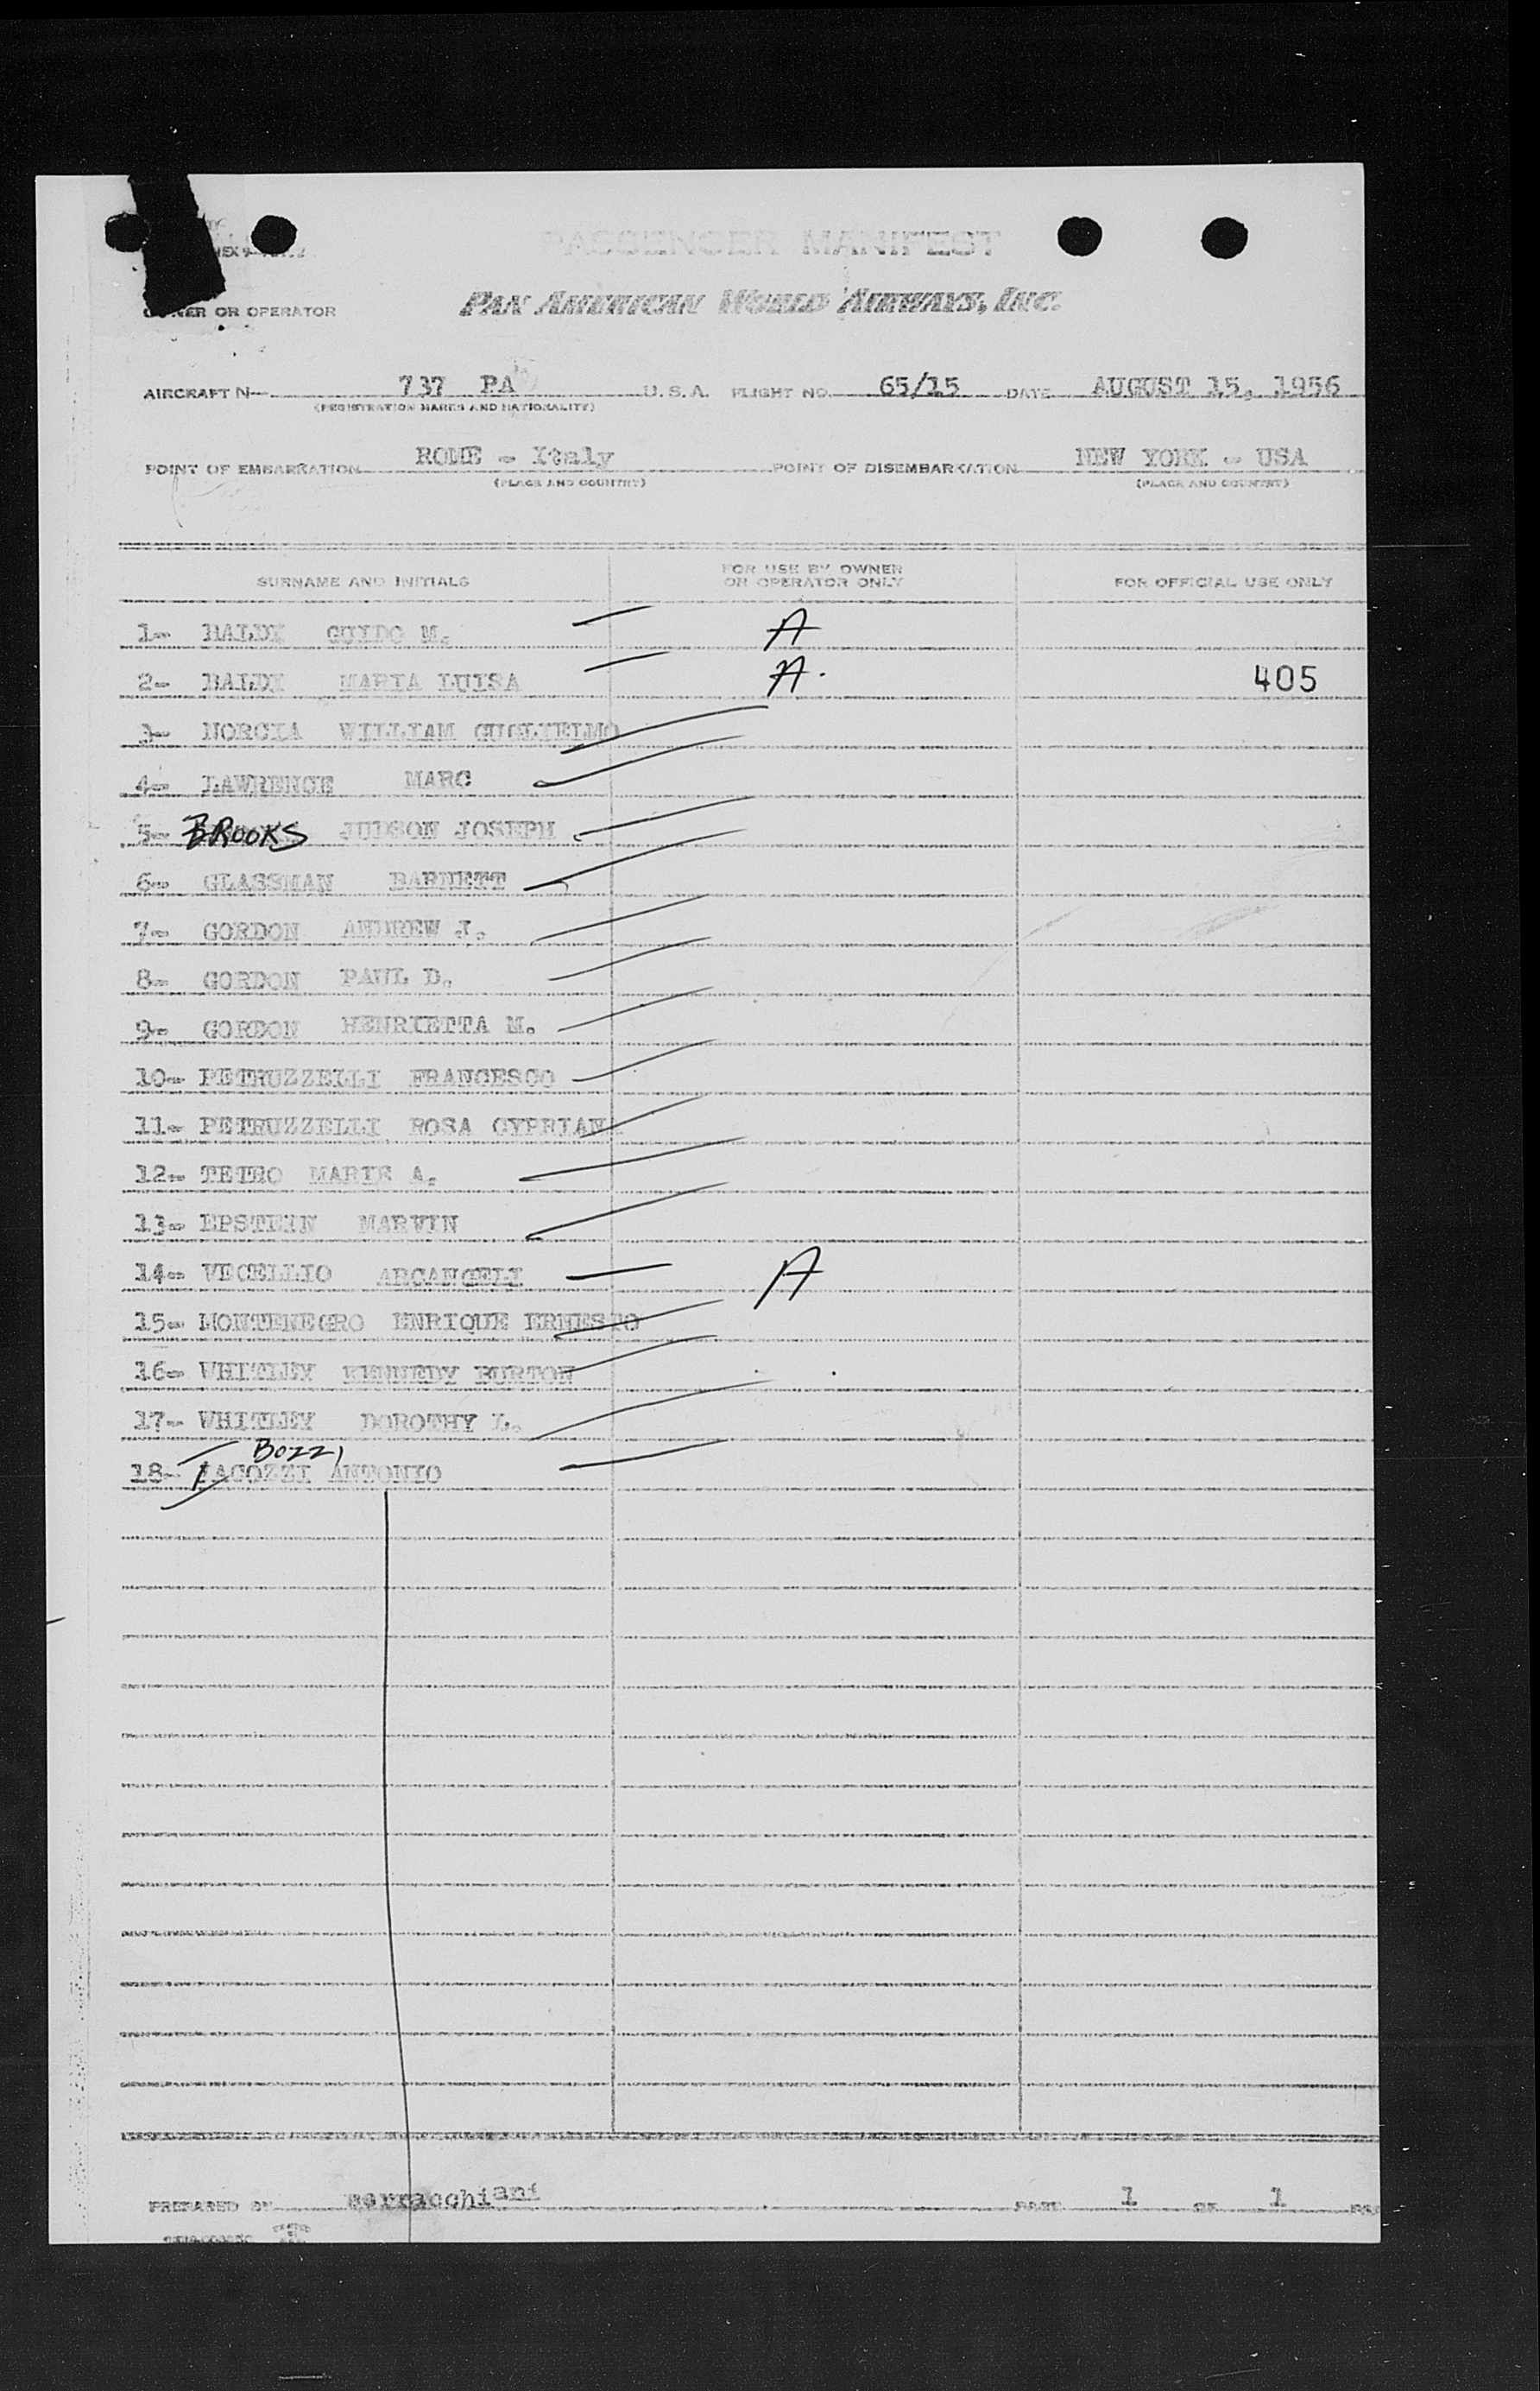 PASSENGER MANIFEST
OWNER OR OPERATOR PAN AMERICAN WORLD AIRWAYS, INC.
AIRCRAFT N- 737 PA U.S.A. FLIGHT NO. 65/15 DATE AUGUST 15, 1956
(REGISTRATION MARKS AND NATIONALITY)
POINT OF EMBARKATION ROME - Italy POINT OF DISEMBARKATION NEW YORK - USA
(PLACE AND COUNTRY) (PLACE AND COUNTRY)
SURNAME AND INITIALS FOR USE BY OWNER OR OPERATOR ONLY FOR OFFICIAL USE ONLY
1- BALDI GUIDO M. A
2- BALDI MARIA LUISA A. 405
3- NORCIA WILLIAM GUGLIELMO
4- LAWRENCE MARC
5- BROOKS JUDSON JOSEPH
6- GLASSMAN BARNETT
7- GORDON ANDREW J.
8- GORDON PAUL D.
9- GORDON HENRIETTA M.
10- PETRUZZELLI FRANCESCO
11- PETRUZZELLI ROSA CYPRIANA
12- TETRO MARIE A.
13- EPSTEIN MARVIN
14- VECELLIO ARCANGELI A
15- MONTENEGRO ENRIQUE ERNESTO
16- WHITLEY KENNEDY BURTON
17- WHITLEY DOROTHY L.
BOZZI
18- IACOZZI ANTONIO
PREPARED BY serracchiani PAGE 1 OF 1